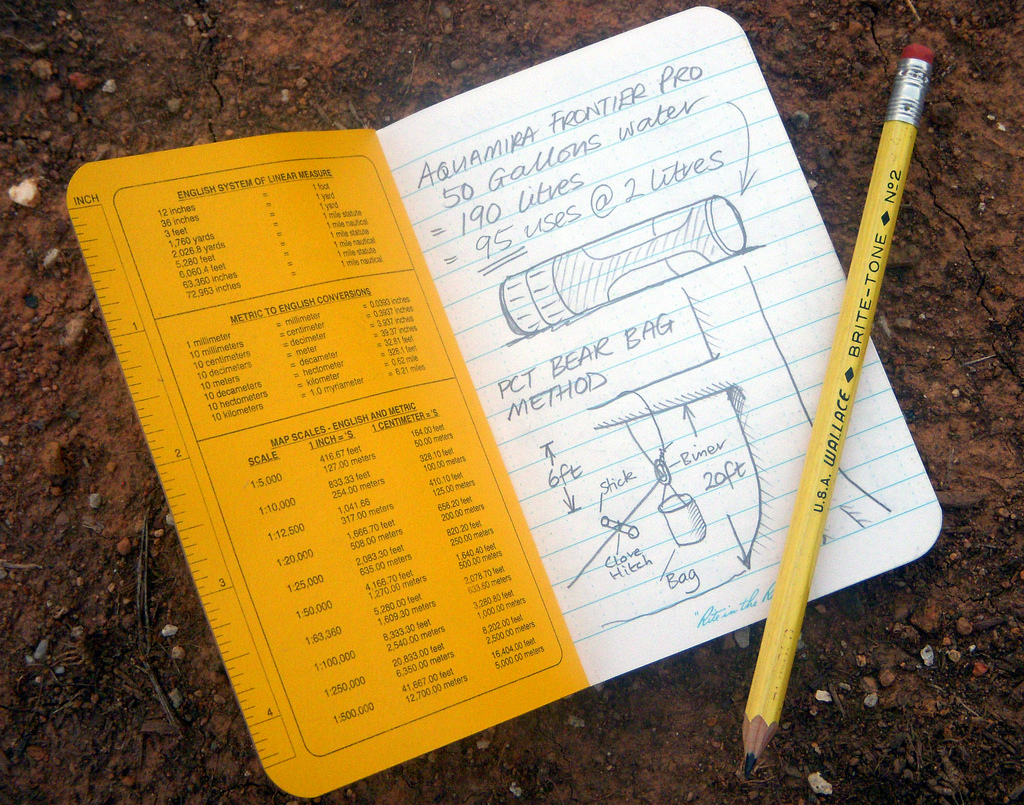 INCH
1
2
3
4
ENGLISH SYSTEM OF LINEAR MEASURE
12 inches = 1 foot
36 inches = 1 yard
3 feet = 1 yard
1,760 yards = 1 mile statute
2,026.8 yards = 1 mile nautical
5,280 feet = 1 mile statute
6,060.4 feet = 1 mile nautical
63,360 inches = 1 mile statute
72,963 inches = 1 mile nautical
METRIC TO ENGLISH CONVERSIONS
1 millimeter = millimeter = 0.0393 inches
10 millimeters = centimeter = 0.3937 inches
10 centimeters = decimeter = 3.937 inches
10 decimeters = meter = 39.37 inches
10 meters = decameter = 32.81 feet
10 decameters = hectometer = 328.1 feet
10 hectometers = kilometer = 0.62 mile
10 kilometers = 1.0 myriameter = 6.21 miles
MAP SCALES - ENGLISH AND METRIC
SCALE 1 INCH = 'S 1 CENTIMETER = 'S
1:5,000 416.67 feet 164.00 feet
127.00 meters 50.00 meters
1:10,000 833.33 feet 328.10 feet
254.00 meters 100.00 meters
1:12,500 1,041.66 410.10 feet
317.00 meters 125.00 meters
1:20,000 1,666.70 feet 656.20 feet
508.00 meters 200.00 meters
1:25,000 2,083.30 feet 820.20 feet
635.00 meters 250.00 meters
1:50,000 4,166.70 feet 1,640.40 feet
1,270.00 meters 500.00 meters
1:63,360 5,280.00 feet 2,078.70 feet
1,609.30 meters 633.60 meters
1:100,000 8,333.30 feet 3,280.80 feet
2,540.00 meters 1,000.00 meters
1:250,000 20,833.00 feet 8,202.00 feet
6,350.00 meters 2,500.00 meters
1:500,000 41,667.00 feet 16,404.00 feet
12,700.00 meters 5,000.00 meters
AQUAMIRA FRONTIER PRO
50 Gallons water
= 190 litres
= 95 uses @ 2 litres
PCT BEAR BAG
METHOD
6ft
Stick
Biner
20ft
Clove
Hitch
Bag
"Rite in the R
U.S.A. WALLACE ◆ BRITE-TONE ◆ Nº2